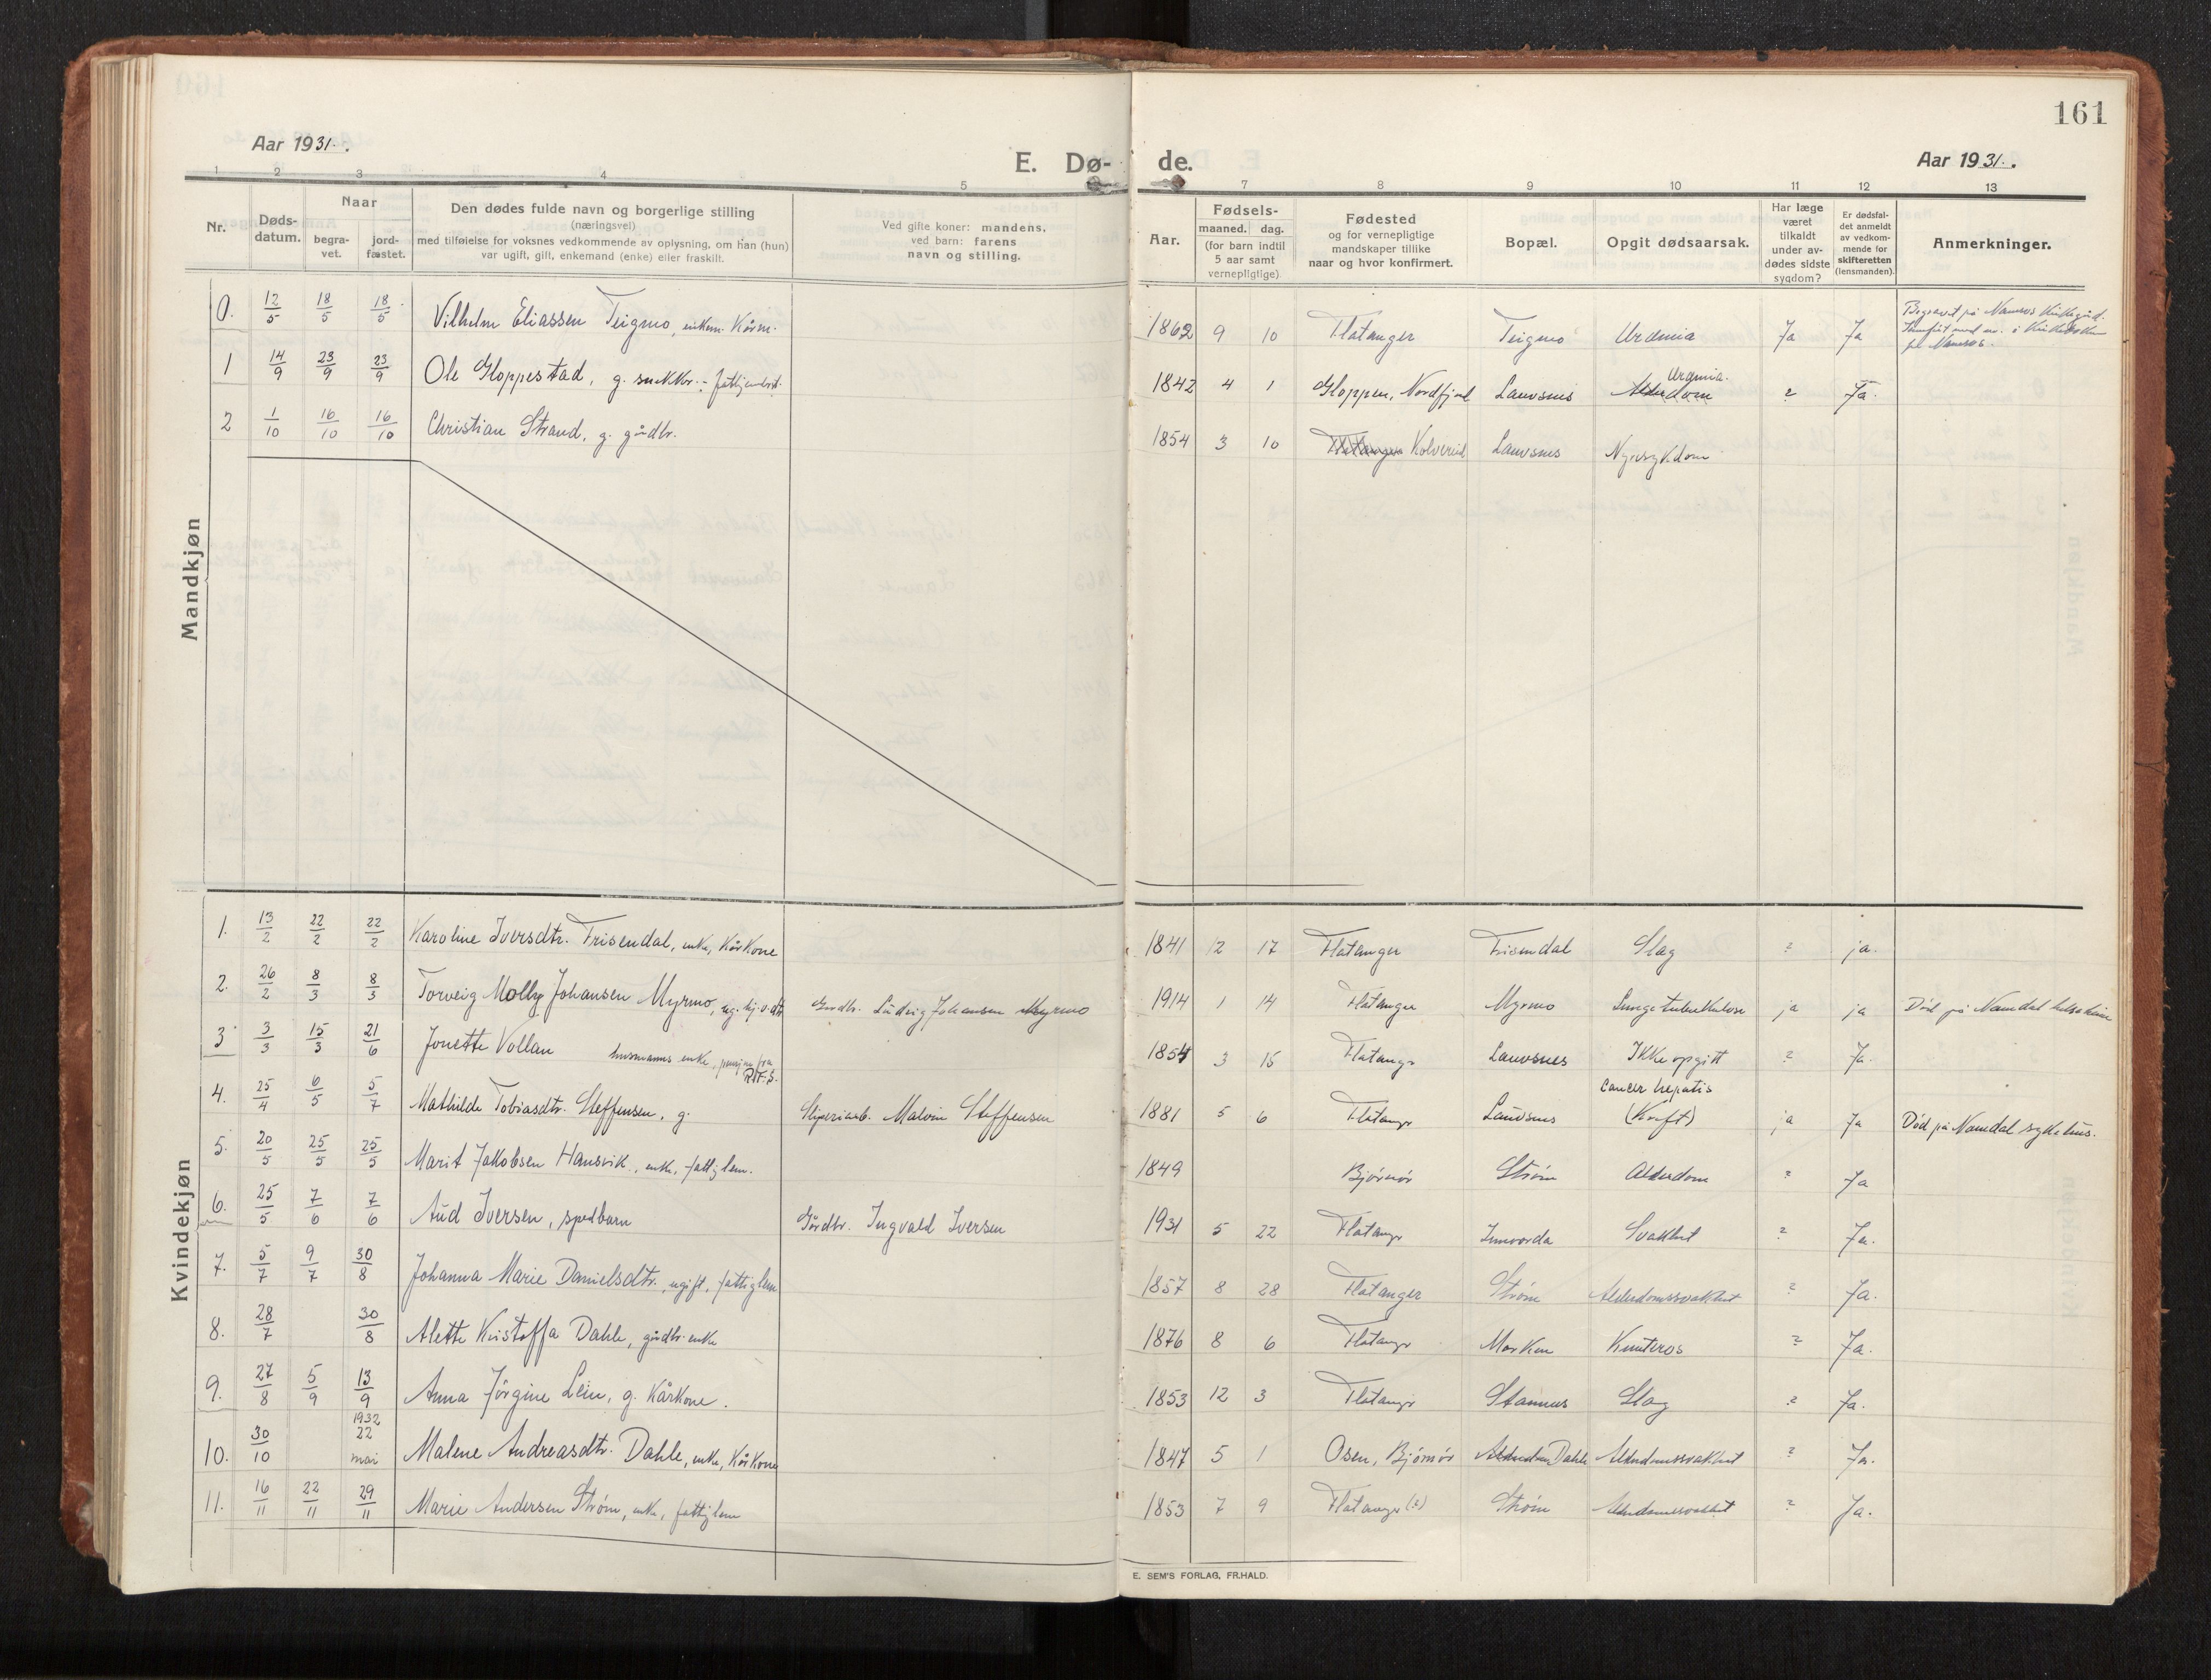 161
Aar 1931.
E. Dø-
de.
Aar 1931.
1 2 3 4 5 7 8 9 10 11 12 13
Nr.
Døds-
datum.
Naar
begra-
vet.
jord-
fæstet.
Den dødes fulde navn og borgerlige stilling
(næringsvei)
med tilføielse for voksnes vedkommende av oplysning, om han (hun)
var ugift, gift, enkemand (enke) eller fraskilt.
Ved gifte koner: mandens,
ved barn: farens
navn og stilling.
Aar.
Fødsels-
maaned. dag.
(for barn indtil
5 aar samt
vernepligtige).
Fødested
og for vernepligtige
mandskaper tillike
naar og hvor konfirmert.
Bopæl.
Opgit dødsaarsak.
Har læge
været
tilkaldt
under av-
dødes sidste
sygdom?
Er dødsfal-
det anmeldt
av vedkom-
mende for
skifteretten
(lensmanden).
Anmerkninger.
Mandkjøn
0. 12/5 18/5 18/5 Vilhelm Eliassen Teigmo, enkem. Kårm. 1862 9 10 Flatanger Teigmo Urämia Ja Ja Begravet på Namsos
1 14/9 23/9 23/9 Ole Gloppestad, g. snekker 1842 4 1 Gloppen, Nordfjord Lauvsnes Alderdom Urämia. ? Ja.
2 1/10 16/10 16/10 Christian Strand, g. gårdbr. 1854 3 10 Flatanger Kolvereid Lauvsnes Nyresykdom
Kvindekjøn
1. 13/2 22/2 22/2 Karoline Iversdtr. Frisendal, enke, Kårkone 1841 12 17 Flatanger Frisendal Slag ? ja.
2. 26/2 8/3 8/3 Torveig Molly Johansen Myrmo, ug. hj.v. dtr Gardbr. Ludvig Johansen Myrmo 1914 1 14 Flatanger Myrmo Lungetuberkulose ja ja Död på Namdal helseheim
3 3/3 15/3 21/6 Jonette Vollan husmanns enke, pensjon fra R.T.F.S. 1854 3 15 Flatangr Lauvsnes Ikke opgitt ? Ja.
4. 25/4 6/5 5/7 Mathilde Tobiasdtr. Steffensen, g. Sliperiarb. Malvin Steffensen 1881 5 6 Flatangr Lauvsnes Cancer hepatis (Kreft) ja Ja Död på Namdal sykehus.
5. 20/5 25/5 25/5 Marit Jakobsen Hansvik, enke, fattiglem. 1849 Bjørnør Strøm Alderdom ? Ja
6. 25/5 7/6 7/6 Aud Iversen, spedbarn Gårdbr. Ingvald Iversen 1931 5 22 Flatangr Innvorda Svakhet ? Ja.
7. 5/7 9/7 30/8 Johanna Marie Danielsdtr., ugift, fattiglem 1857 8 28 Flatanger Strøm Alderdomssvakhet ? Ja.
8. 28/7 30/8 Alette Kristoffa Dahle, gårdbr. enke 1876 8 6 Flatangr Marken Knuteros ? Ja.
9. 27/8 5/9 13/9 Anna Jørgine Lein, g. Kårkone. 1853 12 3 Flatangr Stamnes Slag ? Ja.
10. 30/10 1932 22 mai Malene Andreasdtr. Dahle, enke, Kårkone 1847 5 1 Osen, Bjørnør Dahle Alderdomssvakhet ? Ja.
11. 16/11 22/11 29/11 Marie Andersen Strøm, enke, fattiglem 1853 7 9 Flatanger (?) Strøm Alderdomssvakhet ? Ja.
E. SEM'S FORLAG, FR.HALD.